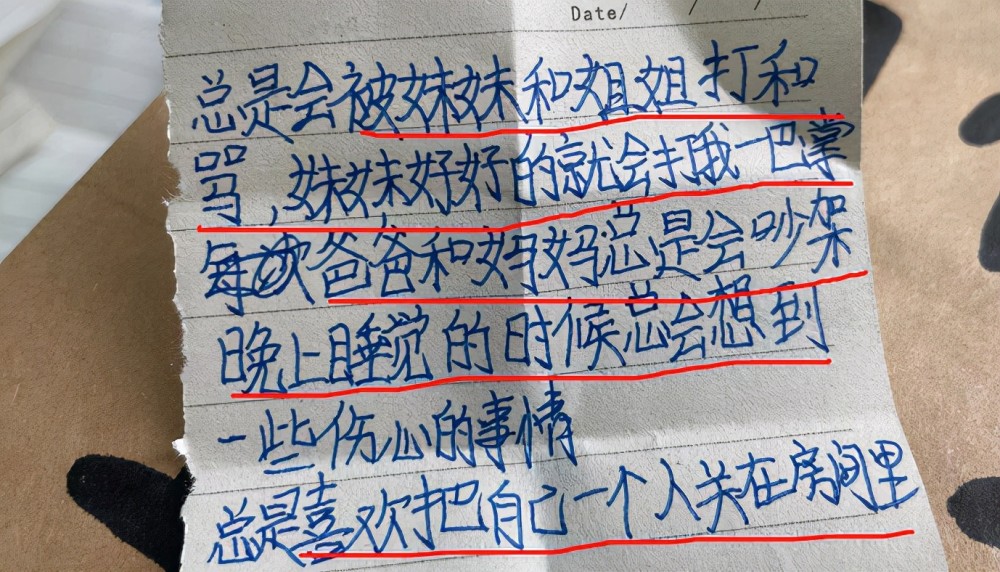 Date/ / /
总是会被妹妹和姐姐打和
骂,妹妹好好的就会打我一巴掌
每次爸爸和妈妈总是会吵架
晚上睡觉的时候总会想到
一些伤心的事情
总是喜欢把自己一个人关在房间里